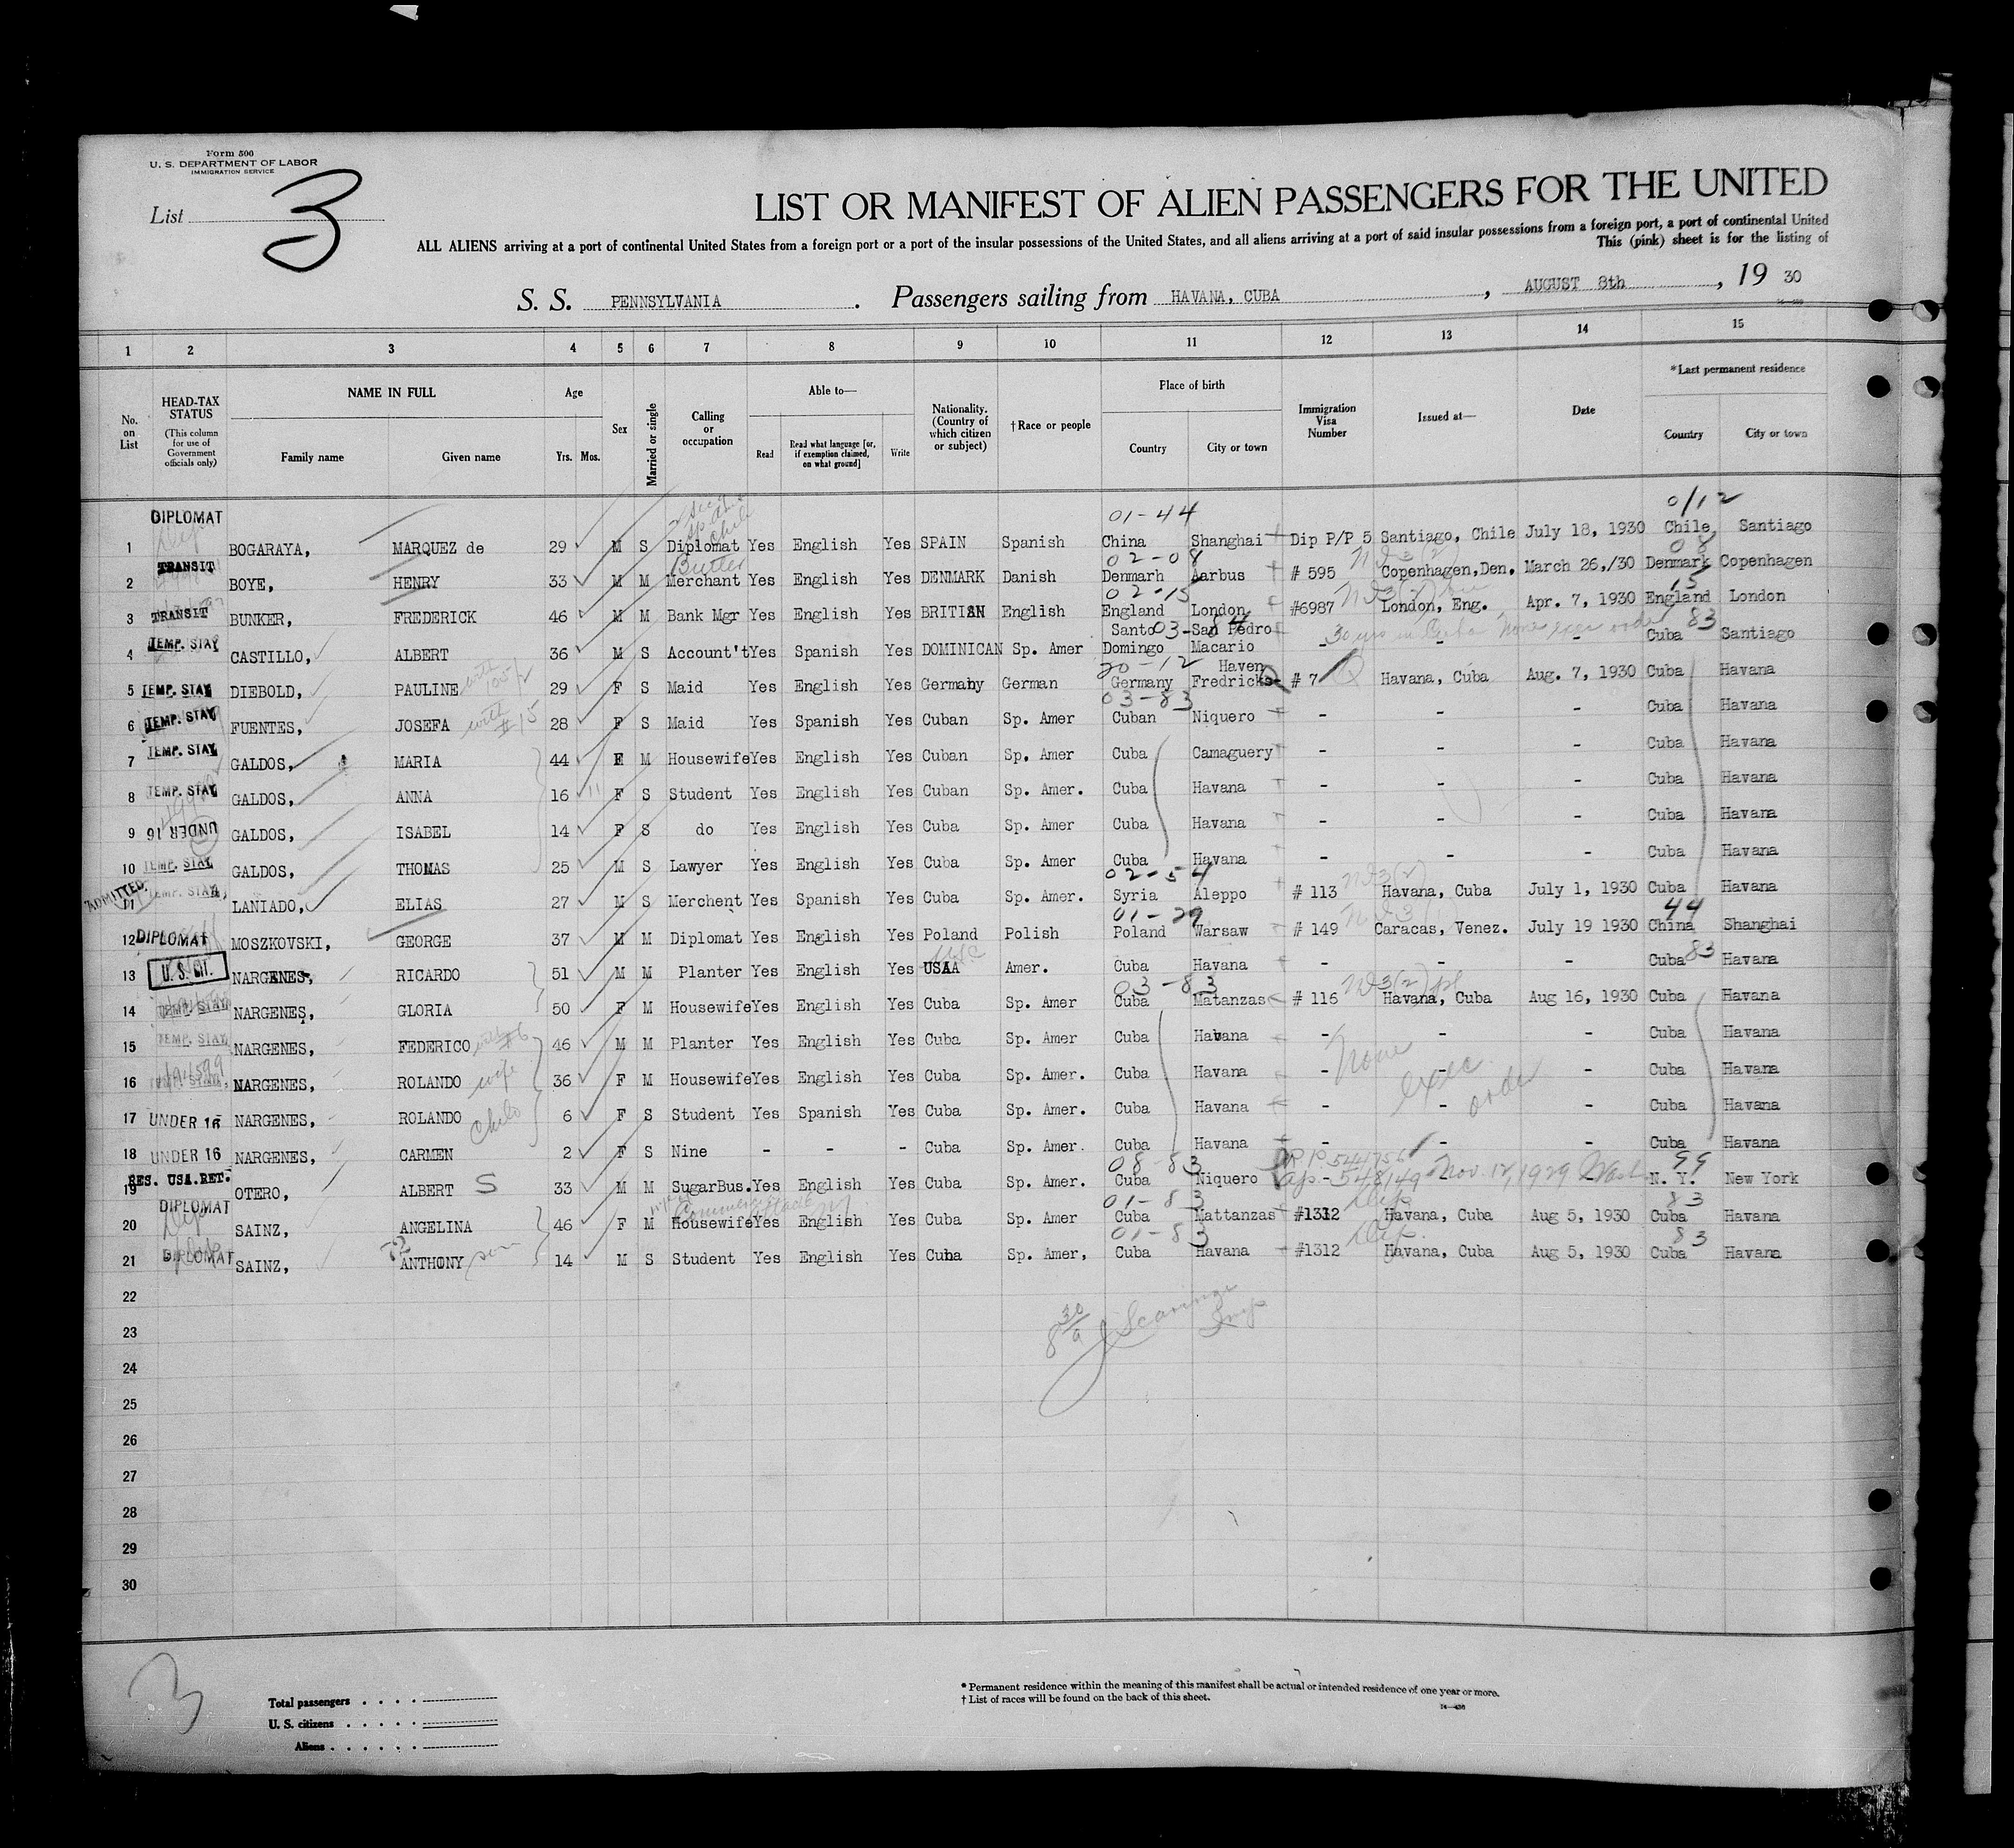 Form 500
U. S. DEPARTMENT OF LABOR
IMMIGRATION SERVICE
List 3
LIST OR MANIFEST OF ALIEN PASSENGERS FOR THE UNITED
ALL ALIENS arriving at a port of continental United States from a foreign port or a port of the insular possessions of the United States, and all aliens arriving at a port of said insular possessions from a foreign port, a port of continental United
This (pink) sheet is for the listing of
S. S. PENNSYLVANIA. Passengers sailing from HAVANA, CUBA, AUGUST 8th, 19 30
1 2 3 4 5 6 7 8 9 10 11 12 13 14 15
No. on List
HEAD-TAX STATUS (This column for use of Government officials only)
NAME IN FULL Family name Given name
Age Yrs. Mos.
Sex
Married or single
Calling or occupation
Able to— Read Read what language [or, if exemption claimed, on what ground] Write
Nationality. (Country of which citizen or subject)
†Race or people
Place of birth Country City or town
Immigration Visa Number
Issued at—
Date
*Last permanent residence Country City or town
DIPLOMAT 01-44 0/12
1 BOGARAYA, MARQUEZ de 29 M S Diplomat Yes English Yes SPAIN Spanish China Shanghai Dip P/P 5 Santiago, Chile July 18, 1930 Chile Santiago
TRANSIT Butler 02-08 08
2 BOYE, HENRY 33 M M Merchant Yes English Yes DENMARK Danish Denmarh Aarbus # 595 Copenhagen,Den. March 26,/30 Denmark Copenhagen
02-15 15
3 TRANSIT BUNKER, FREDERICK 46 M M Bank Mgr Yes English Yes BRITISH English England London #6987 London, Eng. Apr. 7, 1930 England London
03-84 83
4 TEMP. STAY CASTILLO, ALBERT 36 M S Account't Yes Spanish Yes DOMINICAN Sp. Amer Santo Domingo San Pedro Macario - - - Cuba Santiago
20-12
5 TEMP. STAY DIEBOLD, PAULINE 29 F S Maid Yes English Yes Germany German Germany Haven Fredricks # 7 Havana, Cuba Aug. 7, 1930 Cuba Havana
03-83
6 TEMP. STAY FUENTES, JOSEFA with #15 28 F S Maid Yes Spanish Yes Cuban Sp. Amer Cuban Niquero - - - Cuba Havana
7 TEMP. STAY GALDOS, MARIA 44 F M Housewife Yes English Yes Cuban Sp. Amer Cuba Camaguery - - - Cuba Havana
8 TEMP. STAY GALDOS, ANNA 16 F S Student Yes English Yes Cuban Sp. Amer. Cuba Havana - - - Cuba Havana
9 UNDER 16 GALDOS, ISABEL 14 F S do Yes English Yes Cuba Sp. Amer Cuba Havana - - - Cuba Havana
10 TEMP. STAY GALDOS, THOMAS 25 M S Lawyer Yes English Yes Cuba Sp. Amer Cuba Havana - - - Cuba Havana
ADMITTED. 02-54
11 TEMP. STAY LANIADO, ELIAS 27 M S Merchent Yes Spanish Yes Cuba Sp. Amer. Syria Aleppo # 113 Havana, Cuba July 1, 1930 Cuba Havana
01-29 44
12 DIPLOMAT MOSZKOVSKI, GEORGE 37 M M Diplomat Yes English Yes Poland Polish Poland Warsaw # 149 Caracas, Venez. July 19 1930 China Shanghai
13 U. S. CIT. NARGENES, RICARDO 51 M M Planter Yes English Yes USA Amer. Cuba Havana - - - Cuba 83 Havana
03-83
14 TEMP. STAY NARGENES, GLORIA 50 F M Housewife Yes English Yes Cuba Sp. Amer Cuba Matanzas # 116 Havana, Cuba Aug 16, 1930 Cuba Havana
15 TEMP. STAY NARGENES, FEDERICO with #6 46 M M Planter Yes English Yes Cuba Sp. Amer Cuba Havana - - - Cuba Havana
None exec. order
16 NARGENES, ROLANDO wife 36 F M Housewife Yes English Yes Cuba Sp. Amer. Cuba Havana - - - Cuba Havana
17 UNDER 16 NARGENES, ROLANDO Child 6 F S Student Yes Spanish Yes Cuba Sp. Amer. Cuba Havana - - - Cuba Havana
18 UNDER 16 NARGENES, CARMEN 2 F S Nine - - - Cuba Sp. Amer. Cuba Havana - - - Cuba Havana
RES. USA. RET. 08-83 99
19 OTERO, ALBERT S 33 M M SugarBus. Yes English Yes Cuba Sp. Amer. Cuba Niquero 548149 Nov. 12, 1929 Wash N. Y. New York
DIPLOMAT Dip 01-83 Dip. 83
20 SAINZ, ANGELINA 46 F M Housewife Yes English Yes Cuba Sp. Amer Cuba Mattanzas #1312 Havana, Cuba Aug 5, 1930 Cuba Havana
DIPLOMAT 01-83 Dip. 83
21 SAINZ, ANTHONY son 14 M S Student Yes English Yes Cuba Sp. Amer, Cuba Havana #1312 Havana, Cuba Aug 5, 1930 Cuba Havana
22
23
24
25
26
27
28
29
30
3
Total passengers
U. S. citizens
Aliens
* Permanent residence within the meaning of this manifest shall be actual or intended residence of one year or more.
† List of races will be found on the back of this sheet.